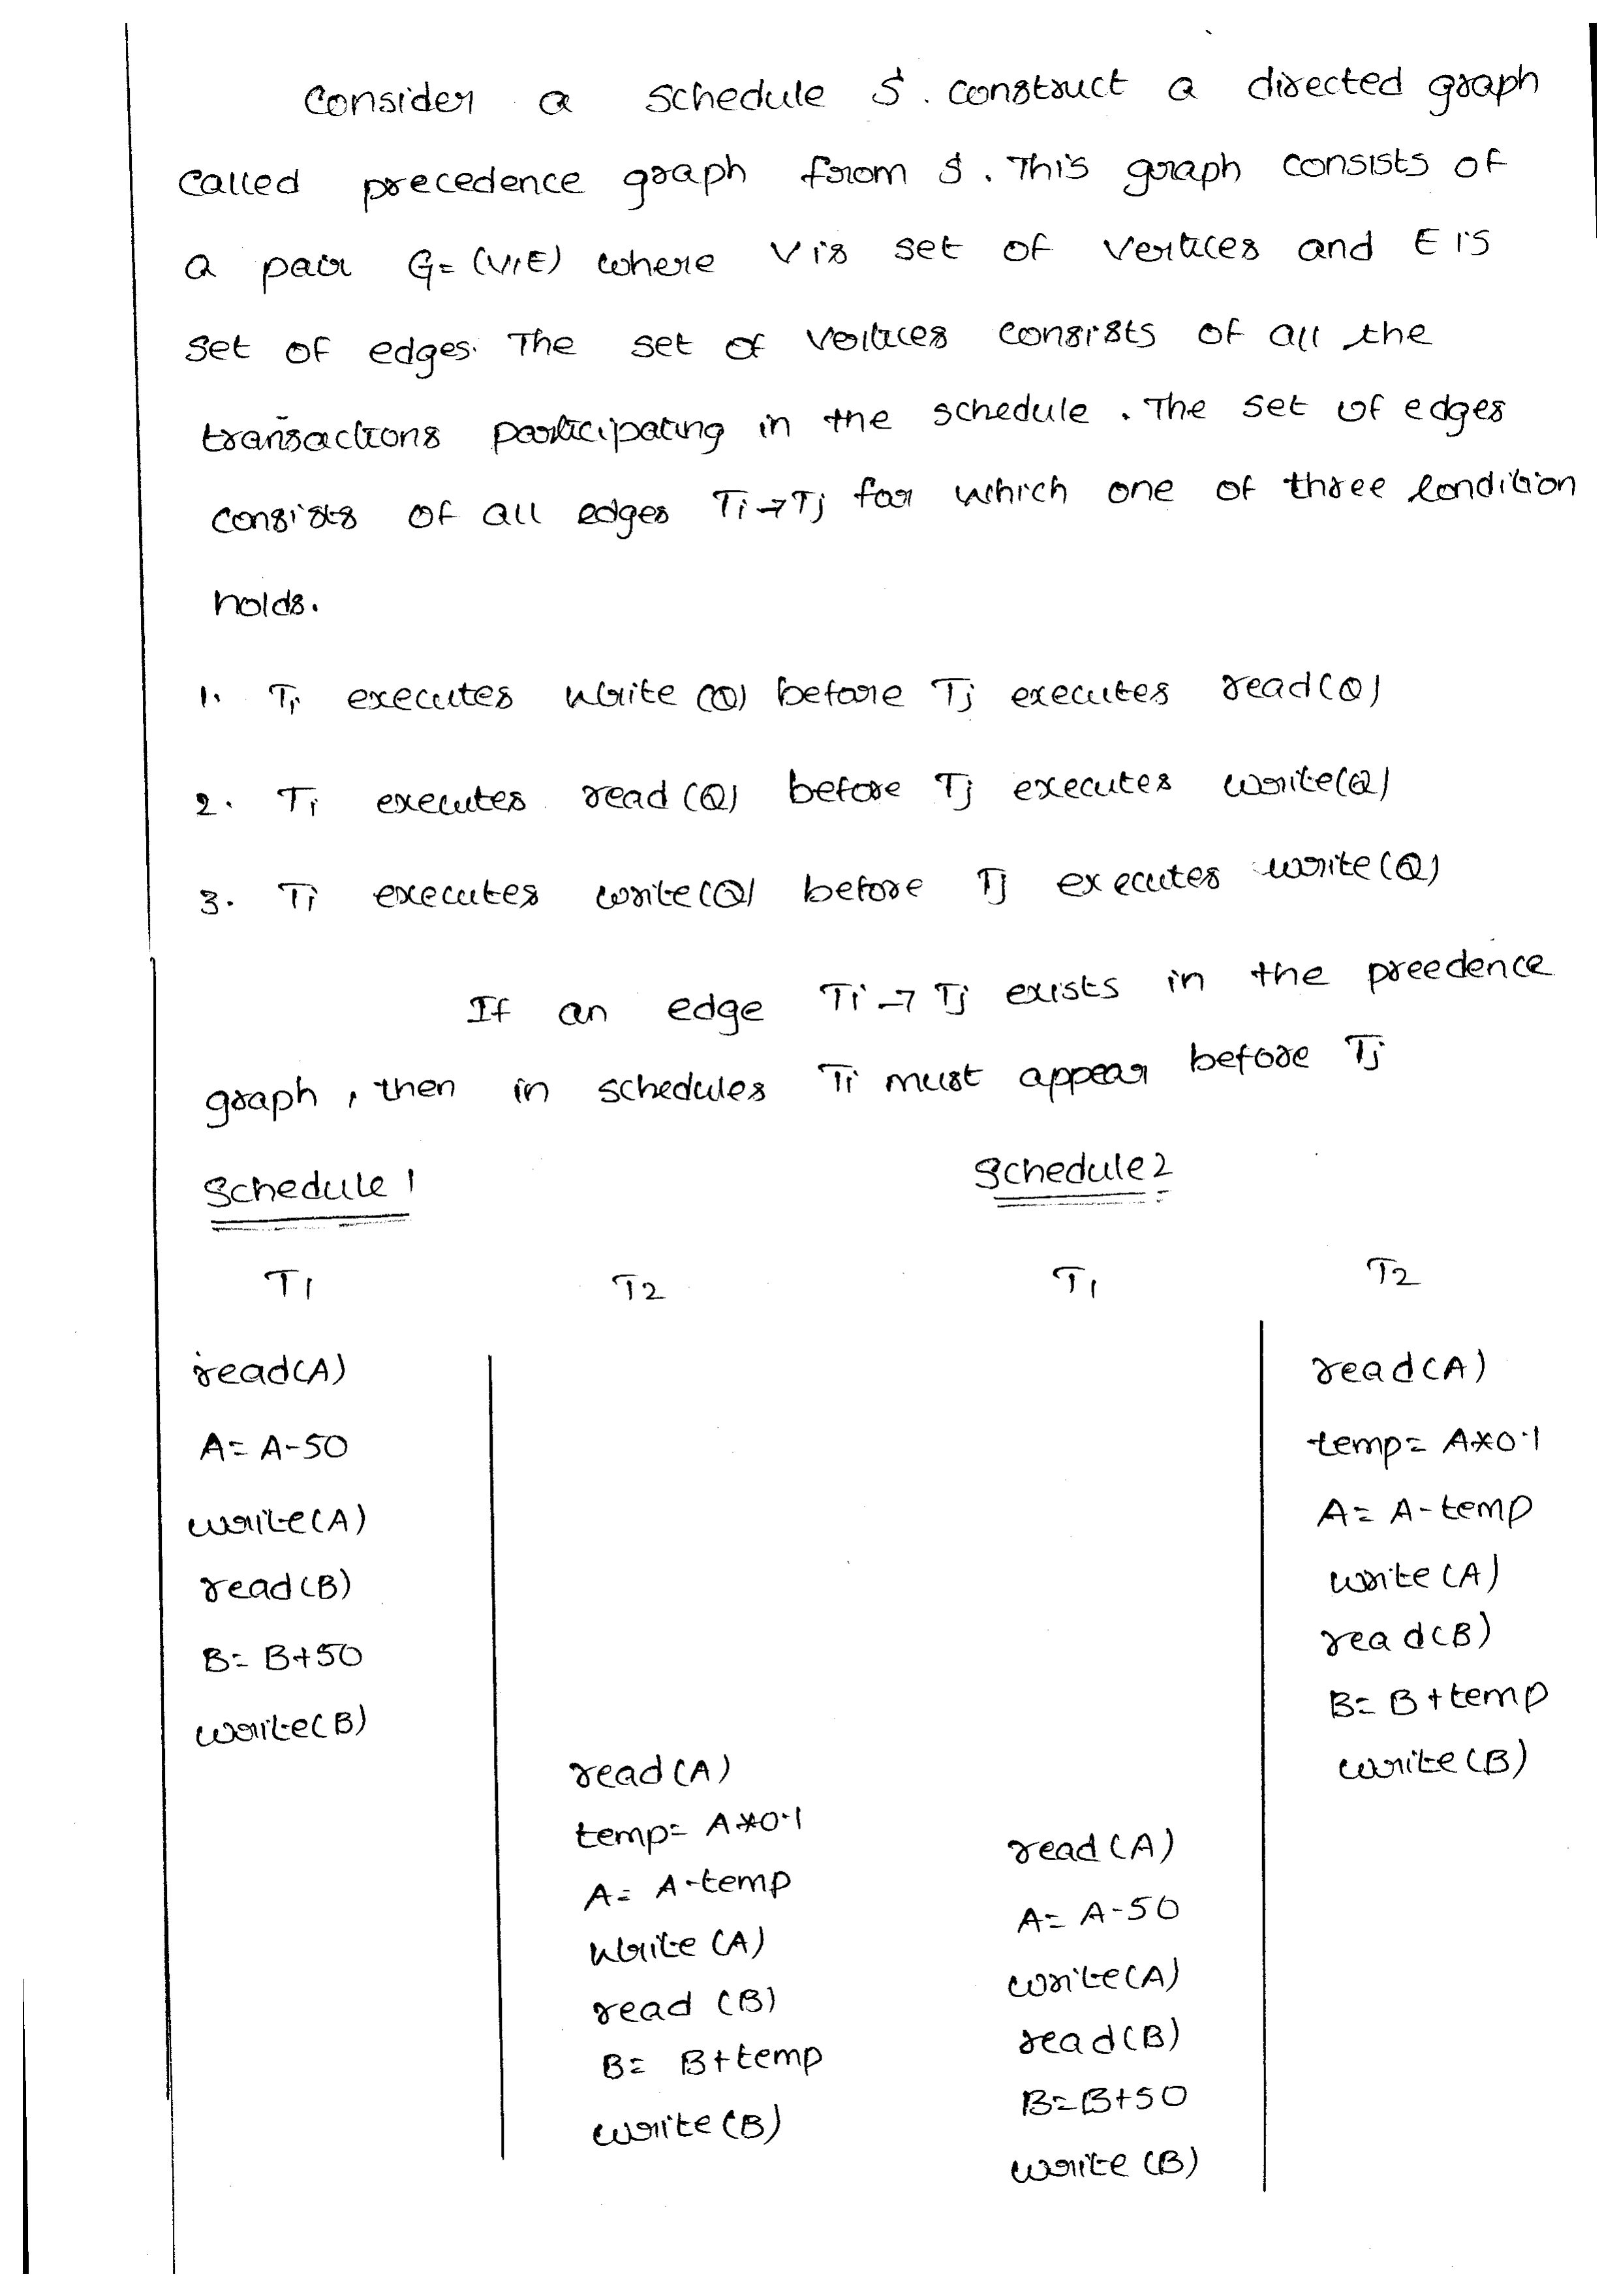 Consider a schedule S. construct a directed graph
called precedence graph from S. This graph consists of
a pair G= (V,E) where V is set of vertices and E is
set of edges. The set of vertices consists of all the
transactions participating in the schedule. The set of edges
consists of all edges Ti→Tj for which one of three condition
holds.
1. Ti executes write(Q) before Tj executes read(Q)
2. Ti executes read(Q) before Tj executes write(Q)
3. Ti executes write(Q) before Tj executes write(Q)
If an edge Ti→Tj exists in the preedence
graph, then in schedules Ti must appear before Tj
Schedule 1 Schedule 2
T1 T2 T1 T2
read(A) read(A)
A= A-50 temp= A*0.1
write(A) A= A-temp
read(B) write(A)
B= B+50 read(B)
write(B) B= B+temp
read(A) write(B)
temp= A*0.1 read(A)
A= A-temp A= A-50
write(A) write(A)
read(B) read(B)
B= B+temp B=B+50
write(B) write(B)